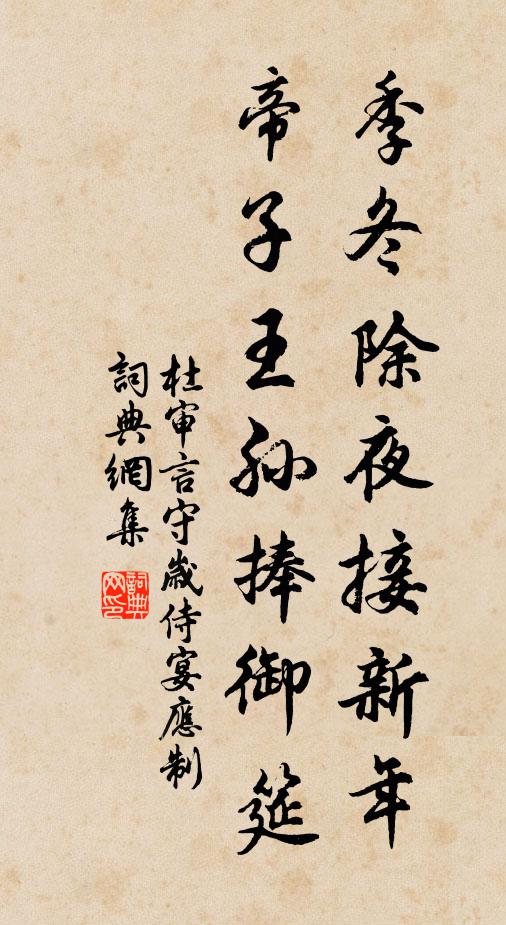 季冬除夜接新年
帝子王孙捧御筵
杜审言守歲侍宴應制
詞典網集
詞典网印